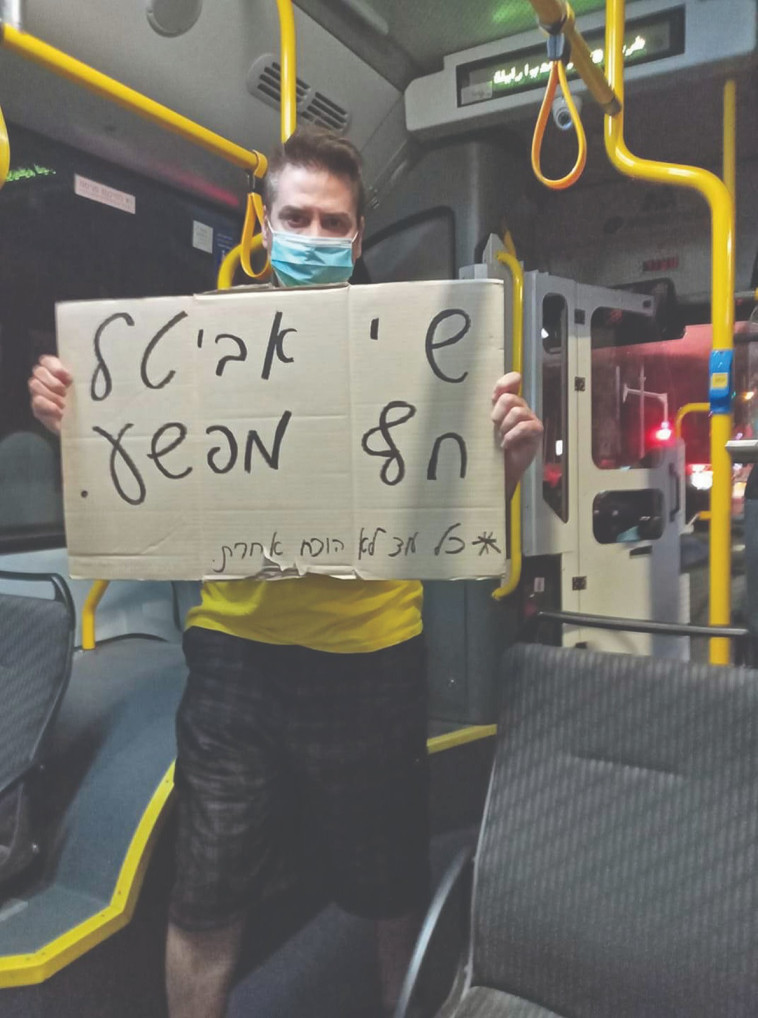 שי אביטל
חף מפשע.
*כל עוד לא הוכח אחרת.